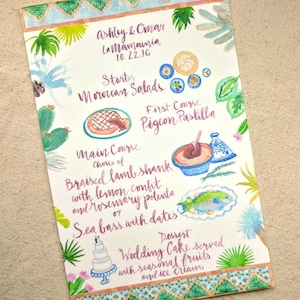 Ashley & Omar
La Mamounia
10.22.16
Starter
Moroccan Salads
First Course
Pigeon Pastilla
Main Course
Choice of
Braised lamb shank
with lemon confit
and rosemary polenta
or
Sea bass with dates
Dessert
Wedding Cake served
with seasonal fruits
and ice cream